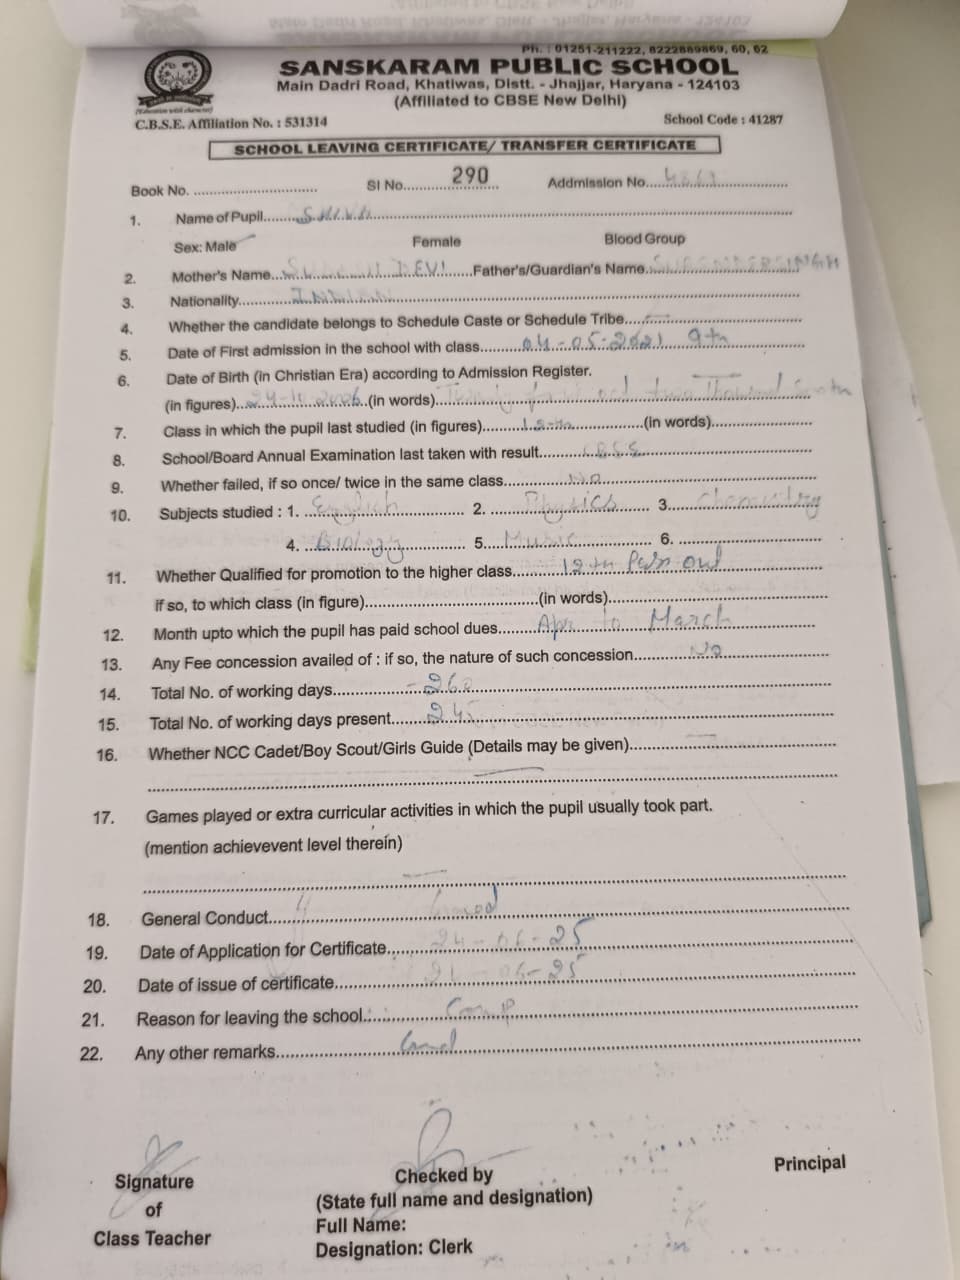 Ph. : 01251-211222, 8222889869, 60, 62
SANSKARAM PUBLIC SCHOOL
Main Dadri Road, Khatiwas, Distt. - Jhajjar, Haryana - 124103
(Affiliated to CBSE New Delhi)
C.B.S.E. Affiliation No. : 531314 School Code : 41287
SCHOOL LEAVING CERTIFICATE/ TRANSFER CERTIFICATE
Book No. SI No. 290 Addmission No.
1. Name of Pupil SHIVA
Sex: Male Female Blood Group
2. Mother's Name DEVI Father's/Guardian's Name
3. Nationality INDIAN
4. Whether the candidate belongs to Schedule Caste or Schedule Tribe
5. Date of First admission in the school with class 04-05-2021 9th
6. Date of Birth (in Christian Era) according to Admission Register.
(in figures) 24-10-2006 (in words) Twenty two Thousand
7. Class in which the pupil last studied (in figures) (in words)
8. School/Board Annual Examination last taken with result CBSE
9. Whether failed, if so once/ twice in the same class No
10. Subjects studied : 1. English 2. Physics 3. Chemistry
4. Biology 5. Music 6.
11. Whether Qualified for promotion to the higher class 12th Pass out
if so, to which class (in figure) (in words)
12. Month upto which the pupil has paid school dues Apr to March
13. Any Fee concession availed of : if so, the nature of such concession No
14. Total No. of working days 260
15. Total No. of working days present 245
16. Whether NCC Cadet/Boy Scout/Girls Guide (Details may be given)
17. Games played or extra curricular activities in which the pupil usually took part.
(mention achievevent level therein)
18. General Conduct Good
19. Date of Application for Certificate 24-06-25
20. Date of issue of certificate 24-06-25
21. Reason for leaving the school
22. Any other remarks Good
Signature
of
Class Teacher
Checked by
(State full name and designation)
Full Name:
Designation: Clerk
Principal